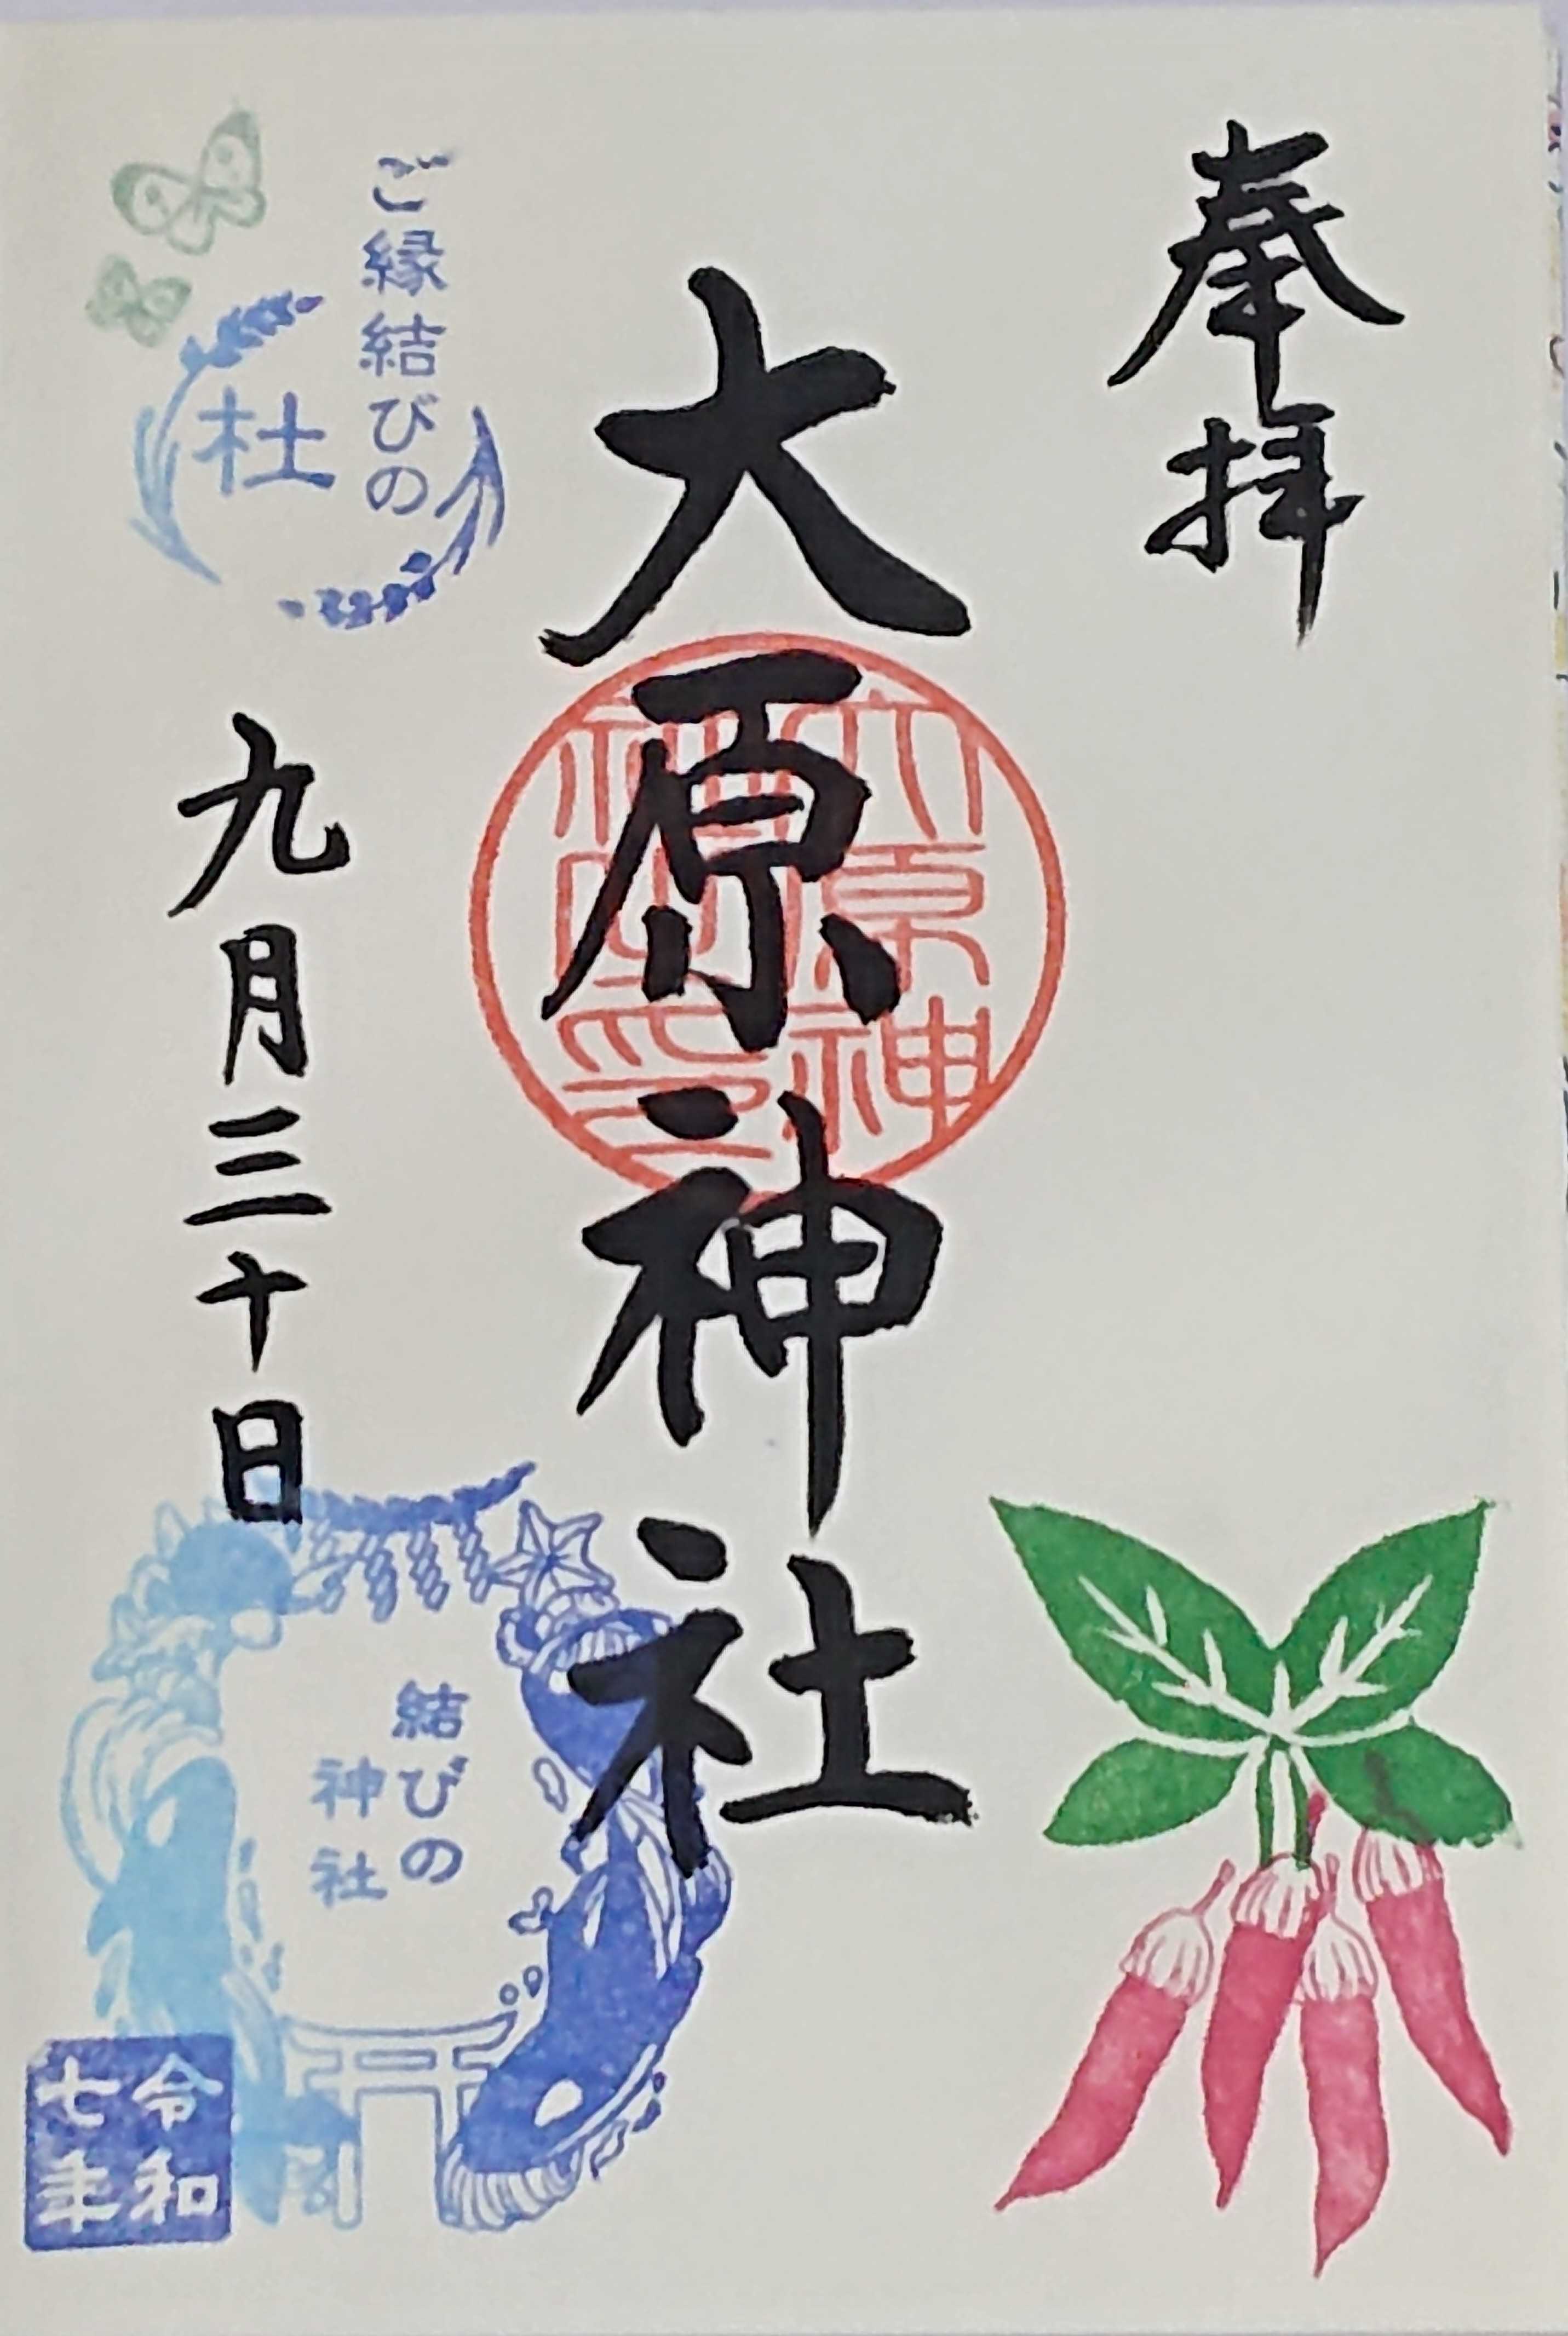 奉拝
大原神社
大原神社之印
ご縁結びの
杜
九月三十日
結びの
神社
令和
七年